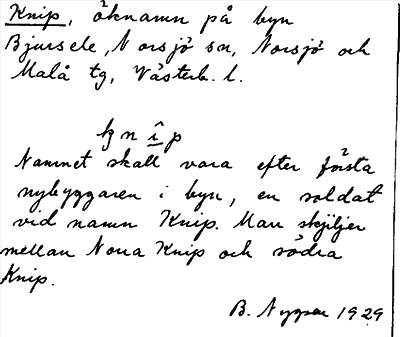 Knip, öknamn på byn
Bjursele, Norsjö sn, Norsjö och
Malå tg, Västerb. l.
kn î p
Namnet skall vara efter första
nybyggaren i byn, en soldat
vid namn Knip. Man skjiljer
mellan Norra Knip och södra
Knip.
B. 1929